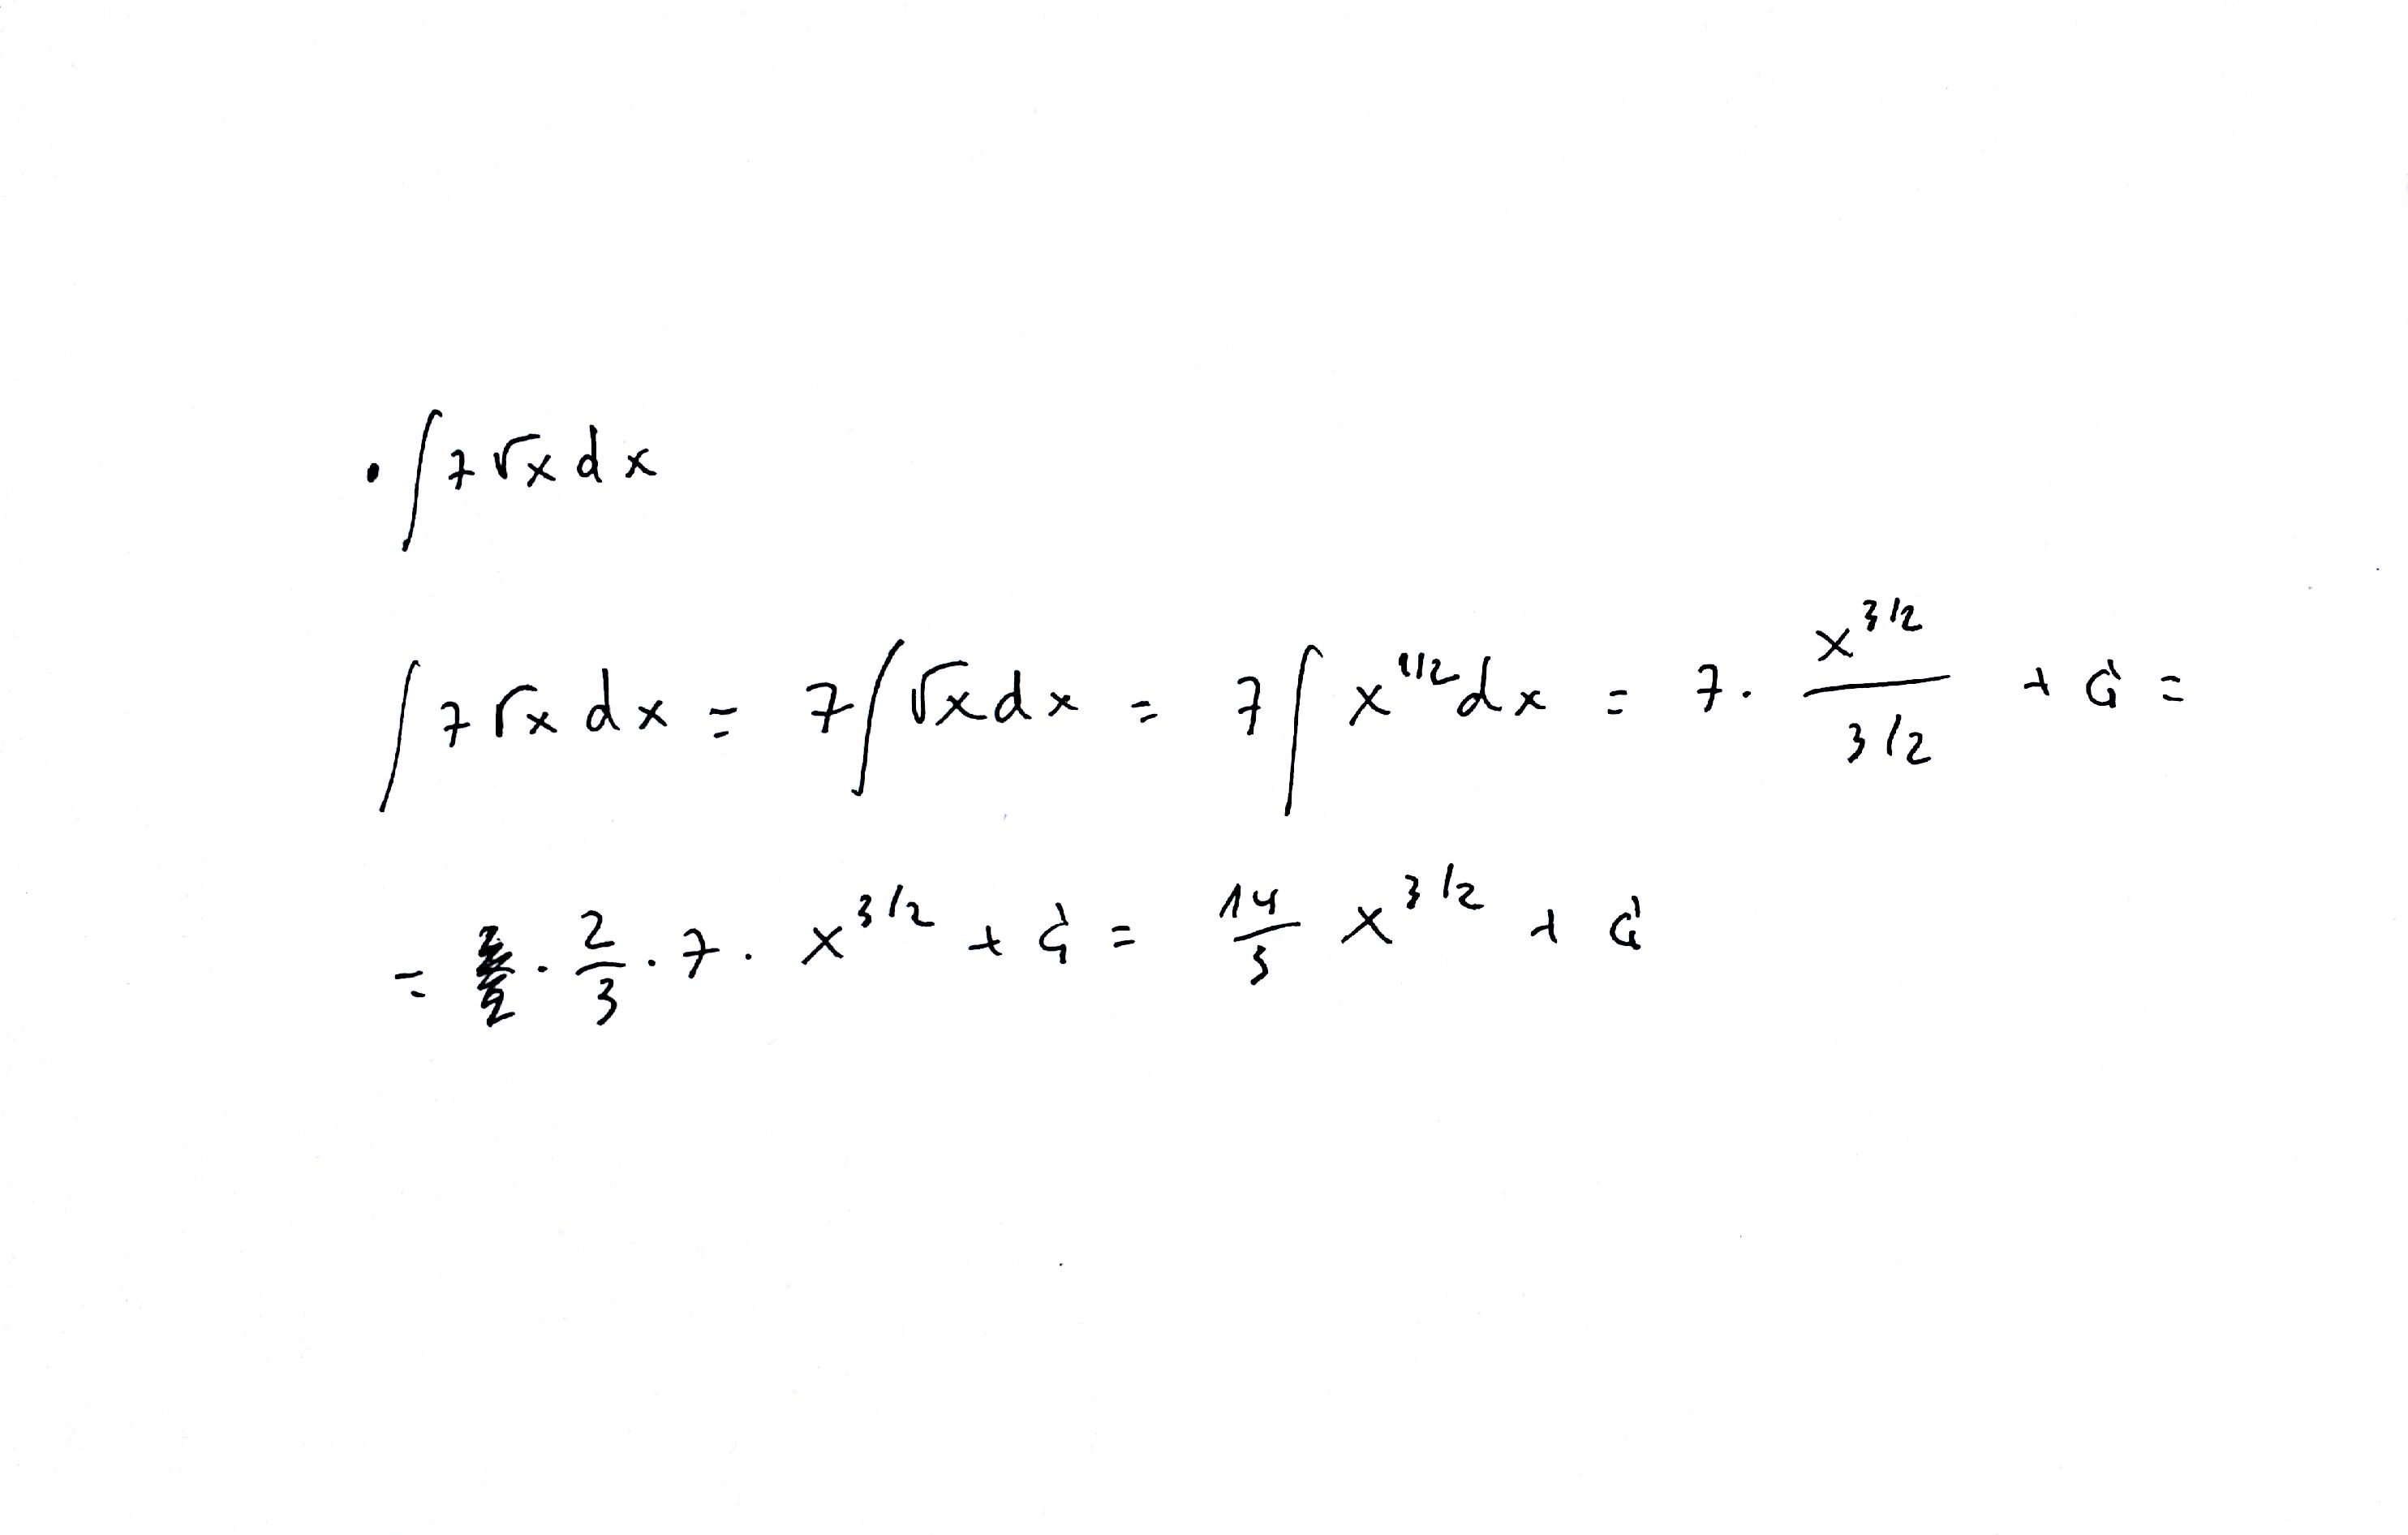 • ∫ 7√x dx
∫ 7√x dx = 7 ∫ √x dx = 7 ∫ x^{1/2} dx = 7 · \frac{x^{3/2}}{3/2} + C =
= · \frac{2}{3} · 7 · x^{3/2} + C = \frac{14}{3} x^{3/2} + C